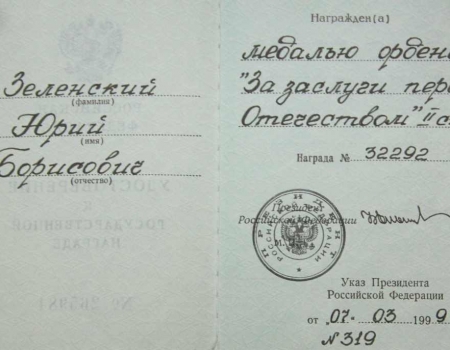 Зеленский
(фамилия)
Юрий
(имя)
Борисович
(отчество)
Награжден(а)
медалью орден
"За заслуги пер
Отечеством" II с
Награда № 32292
Президент
Российской Федерации
М.П.
Указ Президента
Российской Федерации
от 07. 03 1999
N 319